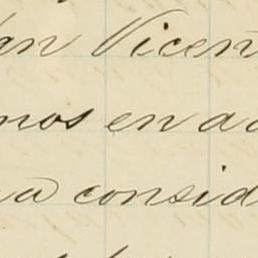 an Vicen
nos en ad
a consid